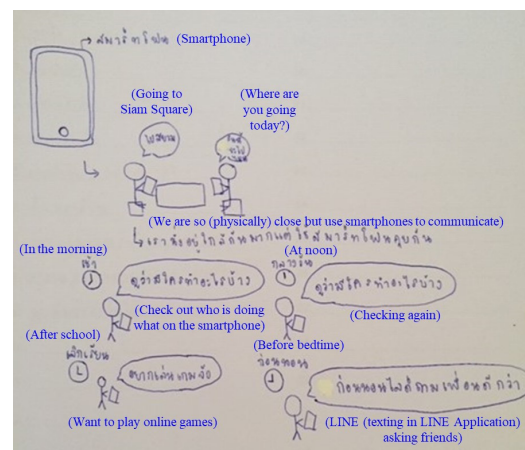 สมาร์ทโฟน (Smartphone)
(Going to
Siam Square)
(Where are
you going
today?)
ไปสยาม
วันนี้
จะไป
(We are so (physically) close but use smartphones to communicate)
เรานั่งอยู่ใกล้กันมากแต่ใช้สมาร์ทโฟนคุยกัน
(In the morning)
เช้า
ดูว่าใครทำอะไรบ้าง
(Check out who is doing
what on the smartphone)
(At noon)
กลางวัน
ดูว่าใครทำอะไรบ้าง
(Checking again)
(After school)
เลิกเรียน
อยากเล่นเกมจัง
(Want to play online games)
(Before bedtime)
ก่อนนอน
ก่อนนอนไลน์ถามเพื่อนดีกว่า
(LINE (texting in LINE Application)
asking friends)